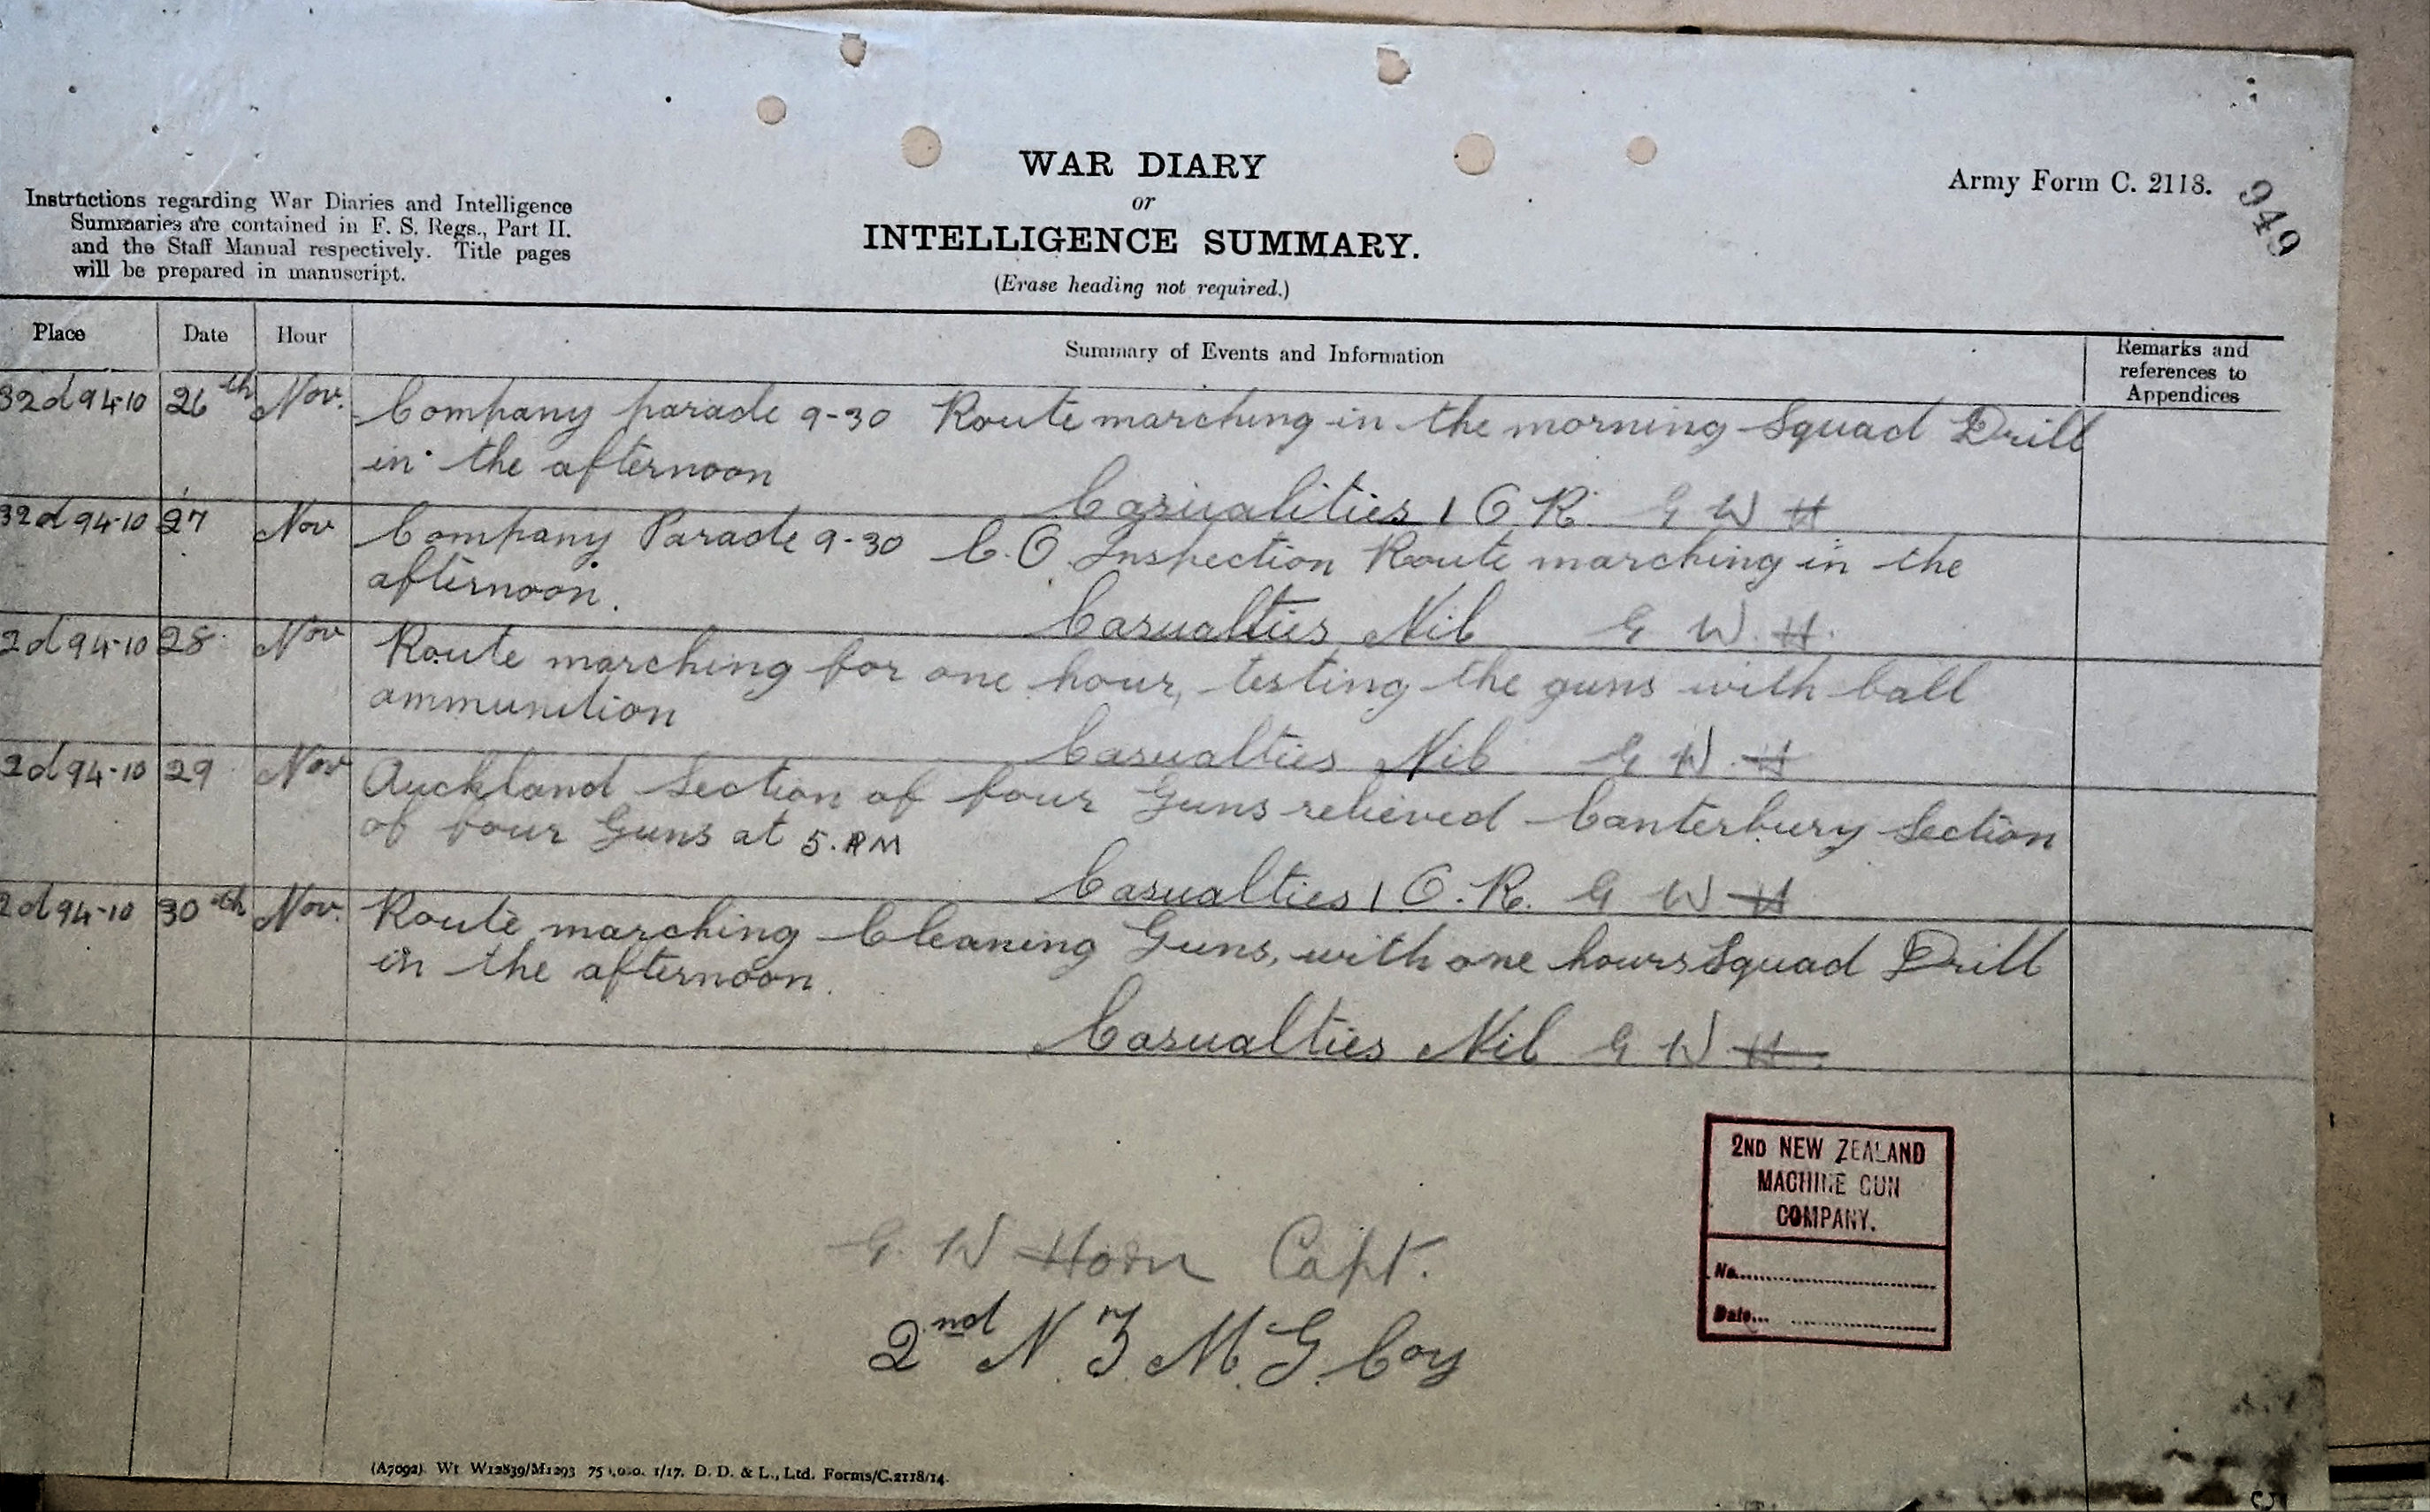 WAR DIARY
or
INTELLIGENCE SUMMARY.
(Erase heading not required.)
Army Form C. 2118.
949
Instructions regarding War Diaries and Intelligence
Summaries are contained in F. S. Regs., Part II.
and the Staff Manual respectively. Title pages
will be prepared in manuscript.
Place Date Hour Summary of Events and Information Remarks and
references to
Appendices
32d 94-10 26th Nov. Company parade 9-30 Route marching in the morning Squad Drill
in the afternoon
Casiualities 1 O.R. G W H
32d 94-10 27 Nov Company Parade 9-30 C.O Inspection Route marching in the
afternoon.
Casualties Nil G W. H.
2d 94-10 28 Nov Route marching for one hour, testing the guns with ball
ammunition
Casualties Nil G W. H
2d 94-10 29 Nov Auckland Section of four Guns relieved Canterbury Section
of four Guns at 5. PM
Casualties 1 O.R. G W H
2d 94-10 30th Nov. Route marching Cleaning Guns, with one hours Squad Drill
in the afternoon.
Casualties Nil G W H
2ND NEW ZEALAND
MACHINE GUN
COMPANY.
No.
Date
G. W Horn Capt.
2nd N.Z. M.G. Coy
(A7092). Wt W12839/M1293 75 ,000. 1/17. D. D. & L., Ltd. Forms/C.2118/14.